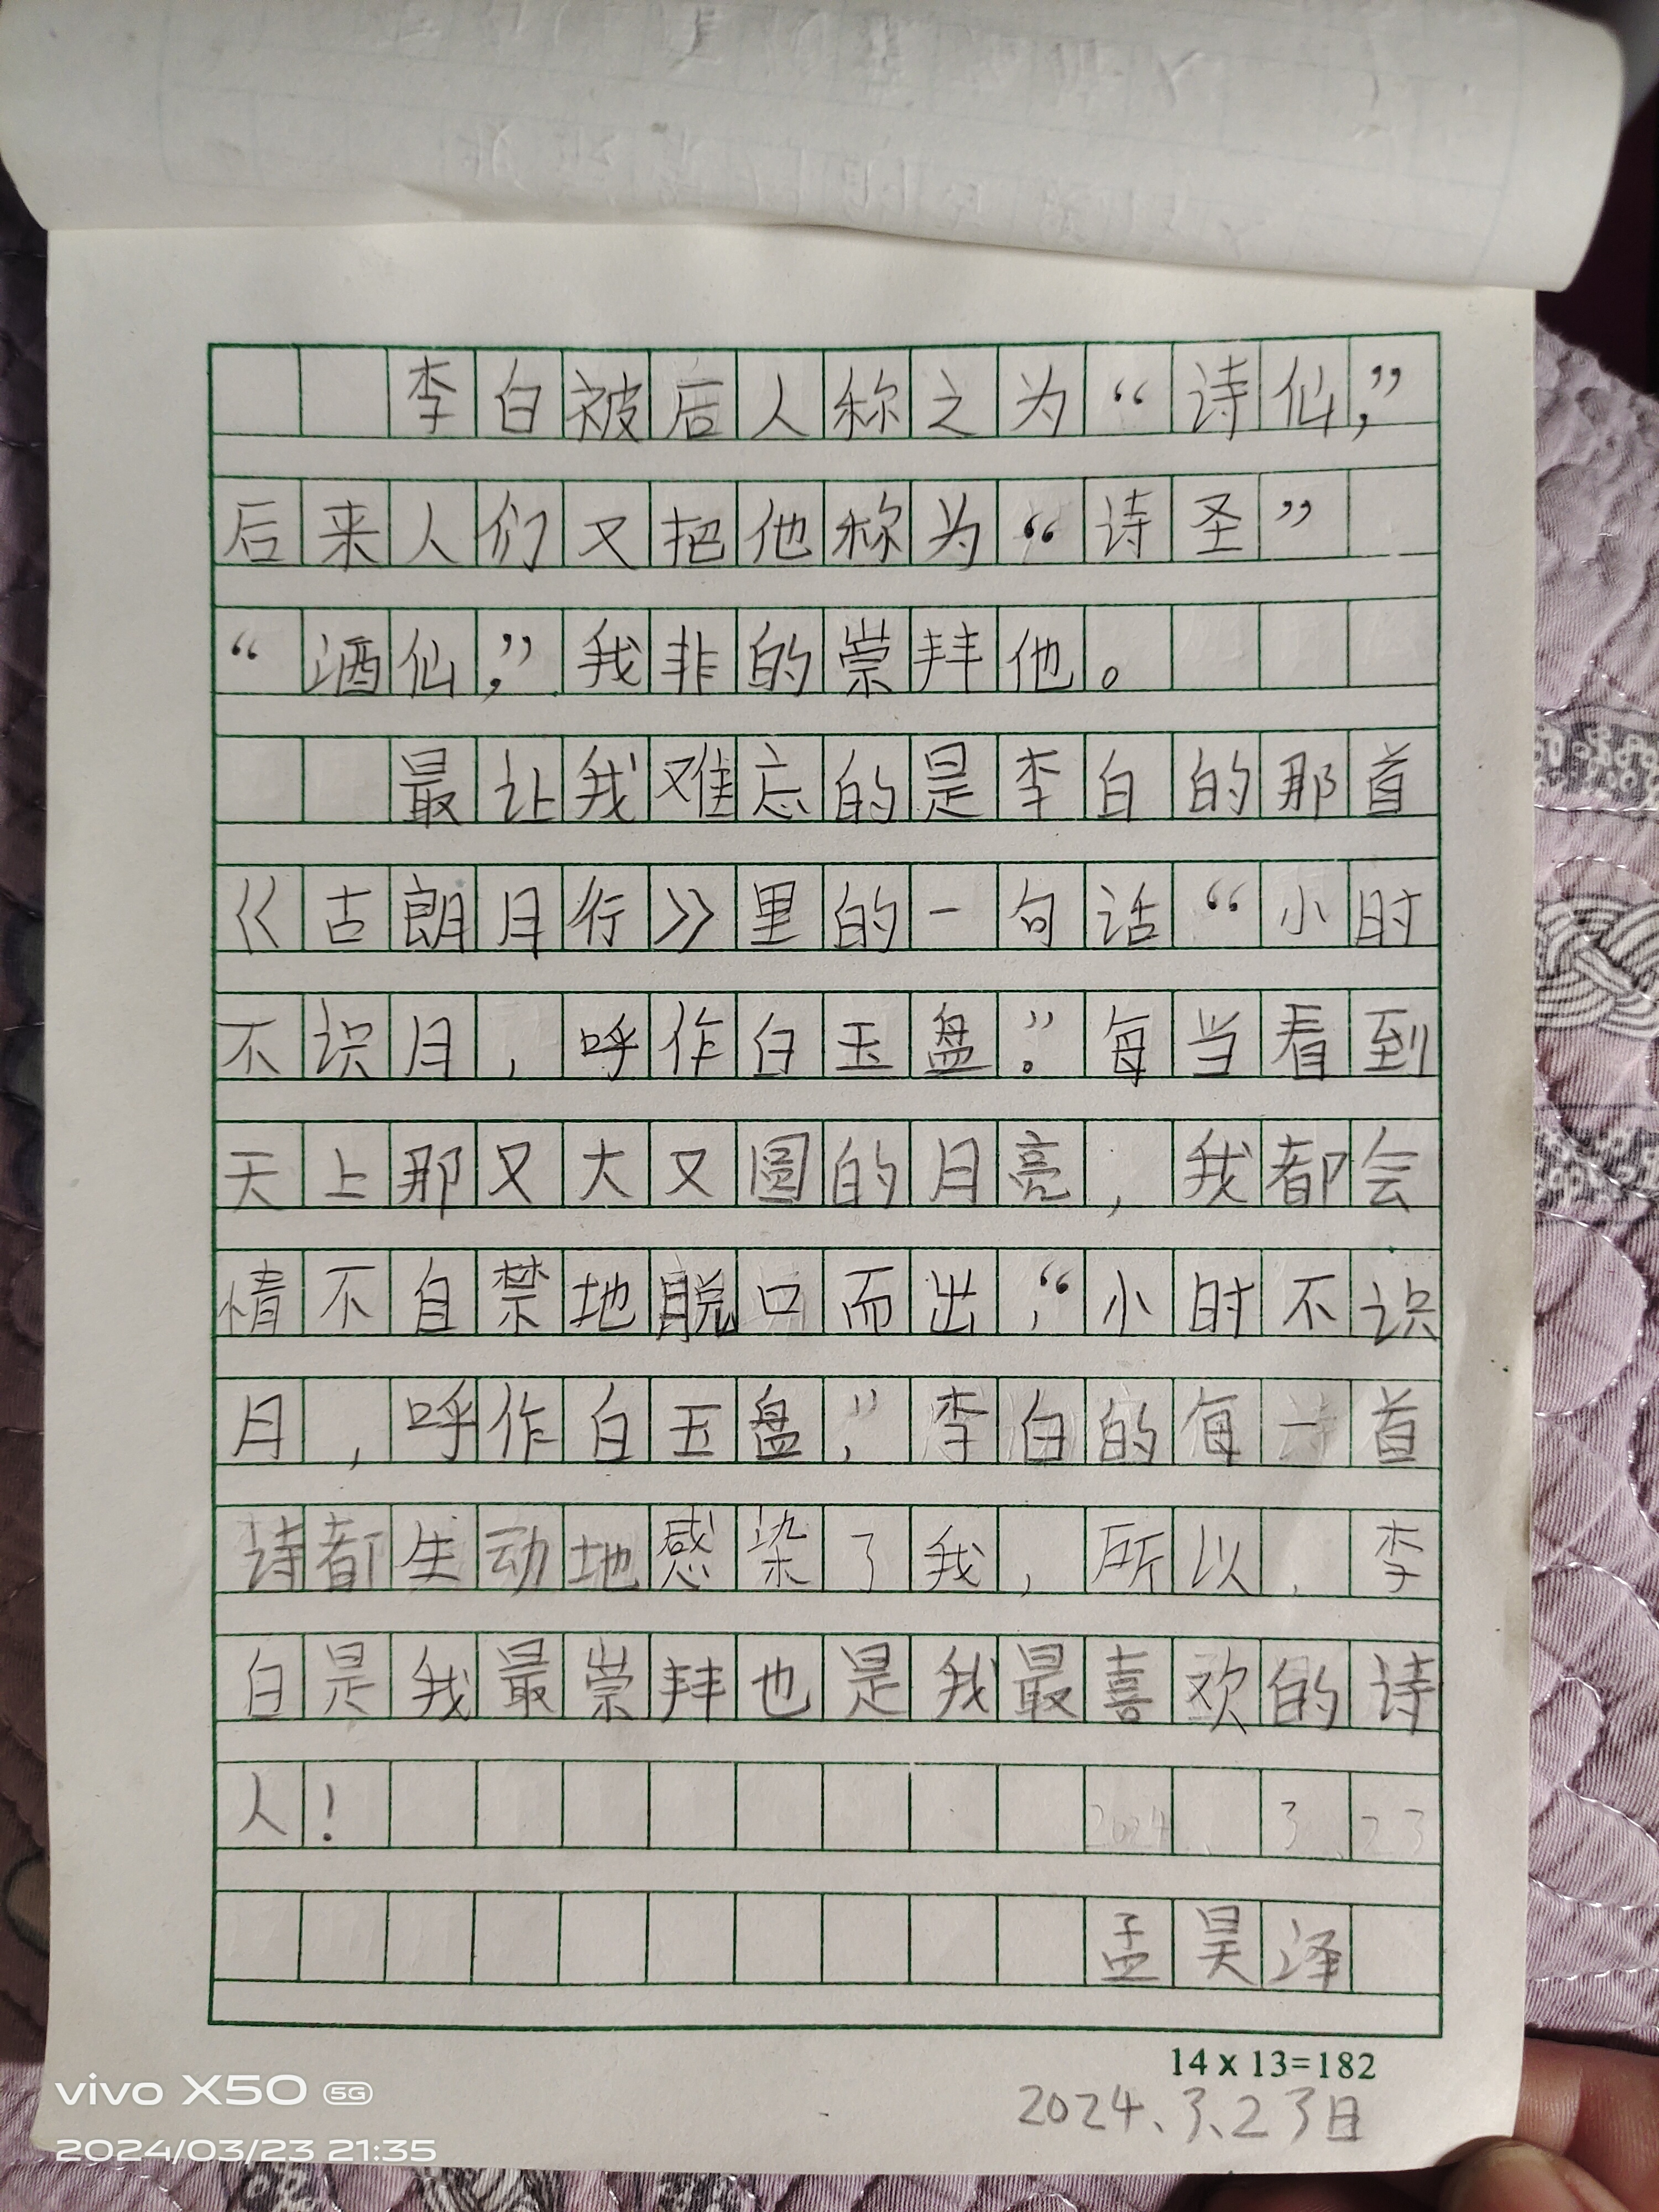 李白被后人称之为“诗仙，”
后来人们又把他称为“诗圣”
“酒仙，”我非的崇拜他。
最让我难忘的是李白的那首
《古朗月行》里的一句话“小时
不识月，呼作白玉盘。”每当看到
天上那又大又圆的月亮，我都会
情不自禁地脱口而出，“小时不识
月，呼作白玉盘，”李白的每一首
诗都生动地感染了我，所以，李
白是我最崇拜也是我最喜欢的诗
人！ 2024、3、23
孟昊泽
14 x 13=182
2024、3、23日
vivo X50 5G
2024/03/23 21:35